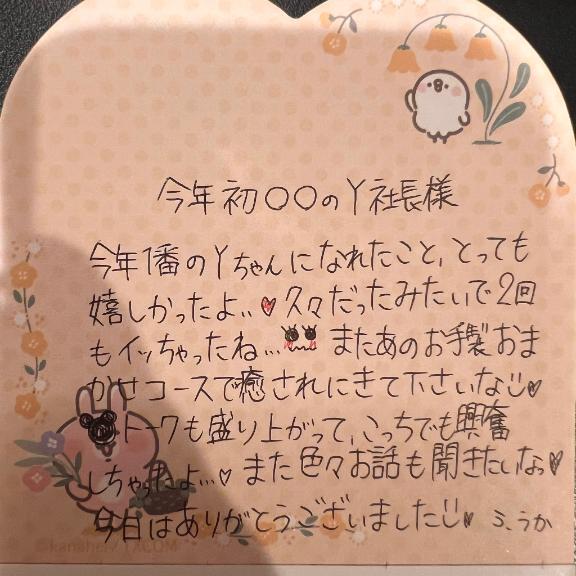 今年初〇〇のY社長様
今年1番のYちゃんになれたこと、とっても
嬉しかったよ..♥久々だったみたいで2回
もイッちゃったね... またあのお手製おま
かせコースで癒されにきて下さいな♥
トークも盛り上がって、こっちでも興奮
しちゃったよ...♡ また色々お話も聞きたいなっ♥
今日はありがとうございました♥ うか